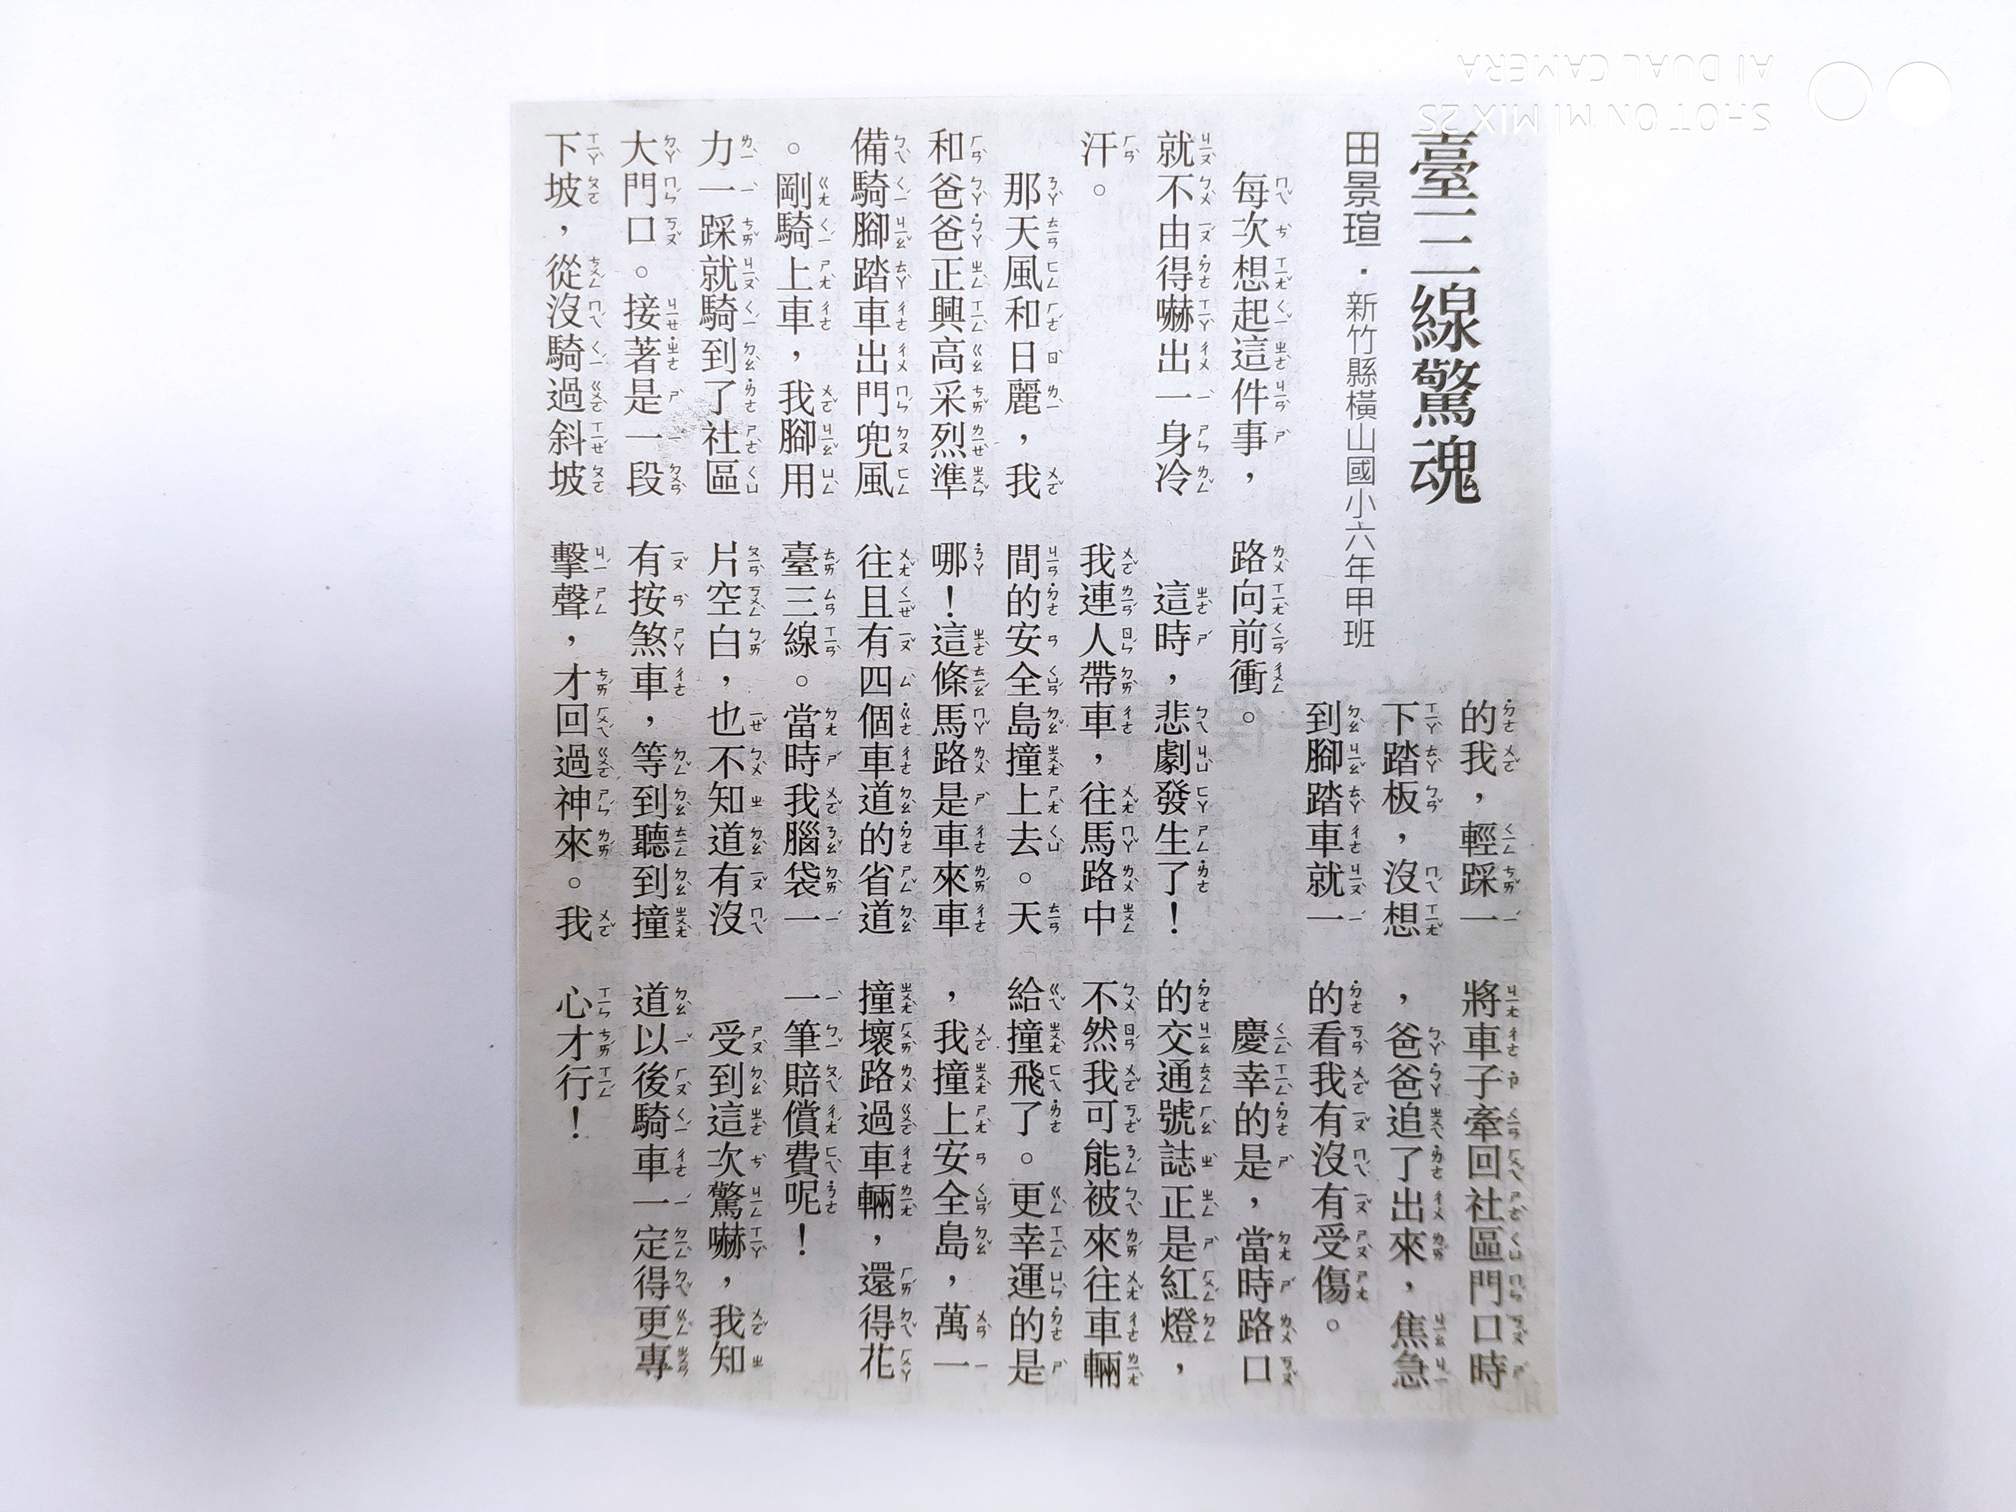 臺三線驚魂
田景瑄·新竹縣橫山國小六年甲班
每次想起這件事，
就不由得嚇出一身冷
汗。
那天風和日麗，我
和爸爸正興高采烈準
備騎腳踏車出門兜風
。剛騎上車，我腳用
力一踩就騎到了社區
大門口。接著是一段
下坡，從沒騎過斜坡
的我，輕踩一
下踏板，沒想
到腳踏車就一
路向前衝。
這時，悲劇發生了！
我連人帶車，往馬路中
間的安全島撞上去。天
哪！這條馬路是車來車
往且有四個車道的省道
臺三線。當時我腦袋一
片空白，也不知道有沒
有按煞車，等到聽到撞
擊聲，才回過神來。我
將車子牽回社區門口時
，爸爸追了出來，焦急
的看我有沒有受傷。
慶幸的是，當時路口
的交通號誌正是紅燈，
不然我可能被來往車輛
給撞飛了。更幸運的是
，我撞上安全島，萬一
撞壞路過車輛，還得花
一筆賠償費呢！
受到這次驚嚇，我知
道以後騎車一定得更專
心才行！
SHOT ON MI MIX 2S
AI DUAL CAMERA